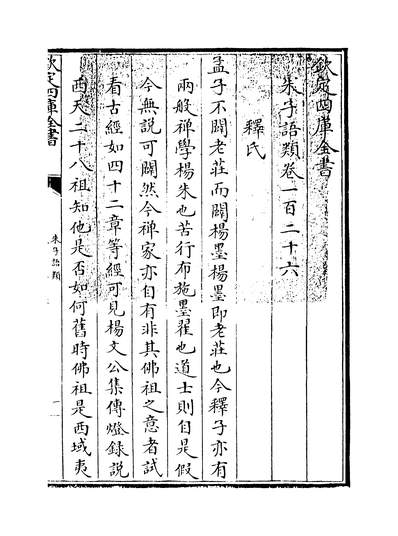 欽定四庫全書
朱子語類卷一百二十六
釋氏
孟子不闢老莊而闢楊墨楊墨即老莊也今釋子亦有
兩般禅學楊朱也苦行布施墨翟也道士則自是假
今無説可闢然今禅家亦自有非其佛祖之意者試
看古經如四十二章等經可見楊文公集傳燈錄說
西天二十八祖知他是否如何舊時佛祖是西域夷
欽定四庫全書
朱子語類